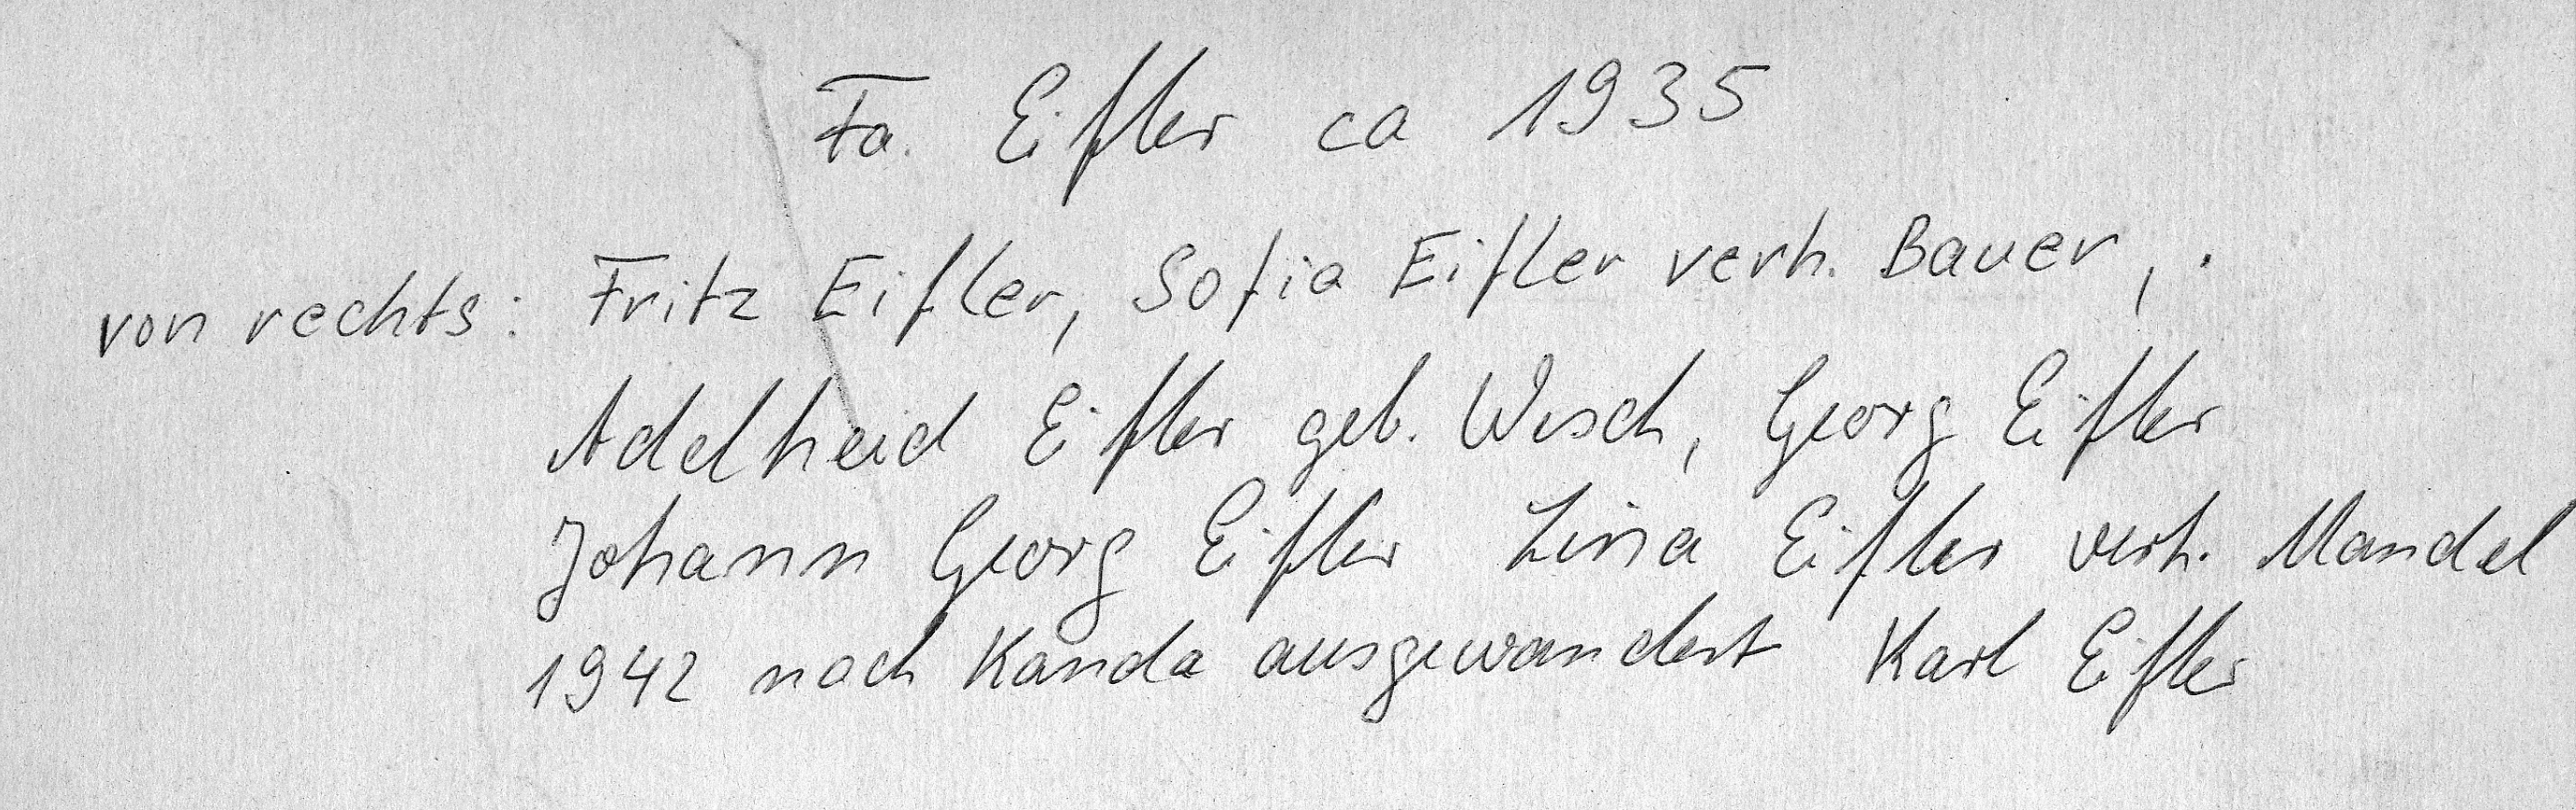 Fa. Eifler ca 1935
von rechts: Fritz Eifler, Sofia Eifler verh. Bauer,
Adelheid Eifler geb. Wesch, Georg Eifler
Johann Georg Eifler Lina Eifler verh. Mandel
1942 nach Kanda ausgewandert Karl Eifler